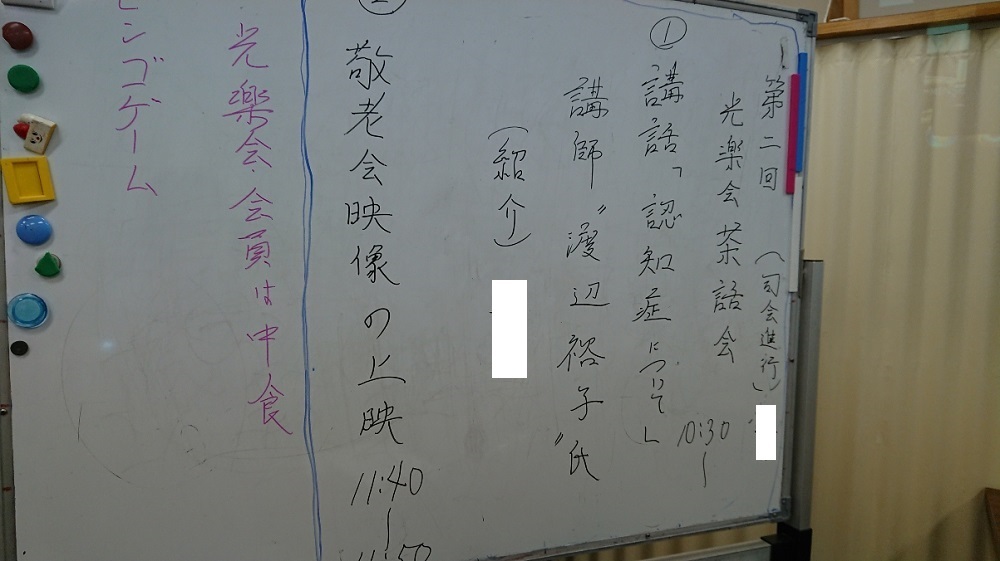 第二回 (司会進行)
光楽会茶話会
10:30〜
① 講話「認知症について」
講師 〝渡辺裕子〟氏
(紹介)
② 敬老会映像の上映 11:40〜11:50
光楽会会員は中食
ビンゴゲーム